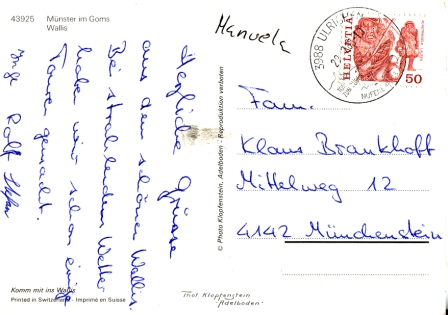 43925 Münster im Goms
Wallis
Herzliche Grüsse
aus dem schönen Wallis.
Bei strahlendem Wetter
haben wir schon einige
Touren gemacht.
Inge Rolf
Komm mit ins Wallis
Printed in Switzerland - Imprimé en Suisse
© Photo Klopfenstein, Adelboden - Reproduktion verboten
Manuela
3988 ULRICHEN
HELVETIA
50
Fam.
Klaus Brankhoff
Mittelweg 12
4142 Münchenstein
Phot Klopfenstein
Adelboden